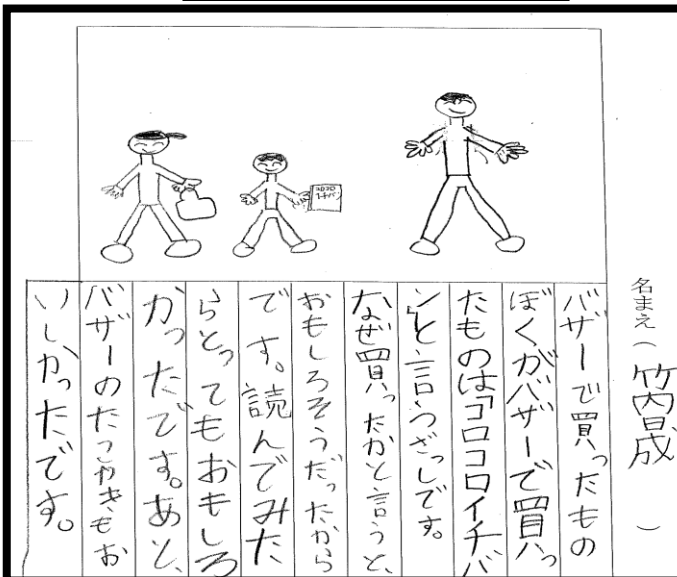 名まえ（竹内日成）
バザーで買ったもの
ぼくがバザーで買っ
たものは「コロコロイチバ
ン」と言うざっしです。
なぜ買ったかと言うと、
おもしろそうだったから
です。読んでみた
らとってもおもしろ
かったです。あと、
バザーのたこやきもお
いしかったです。
コロコロ
イチバン